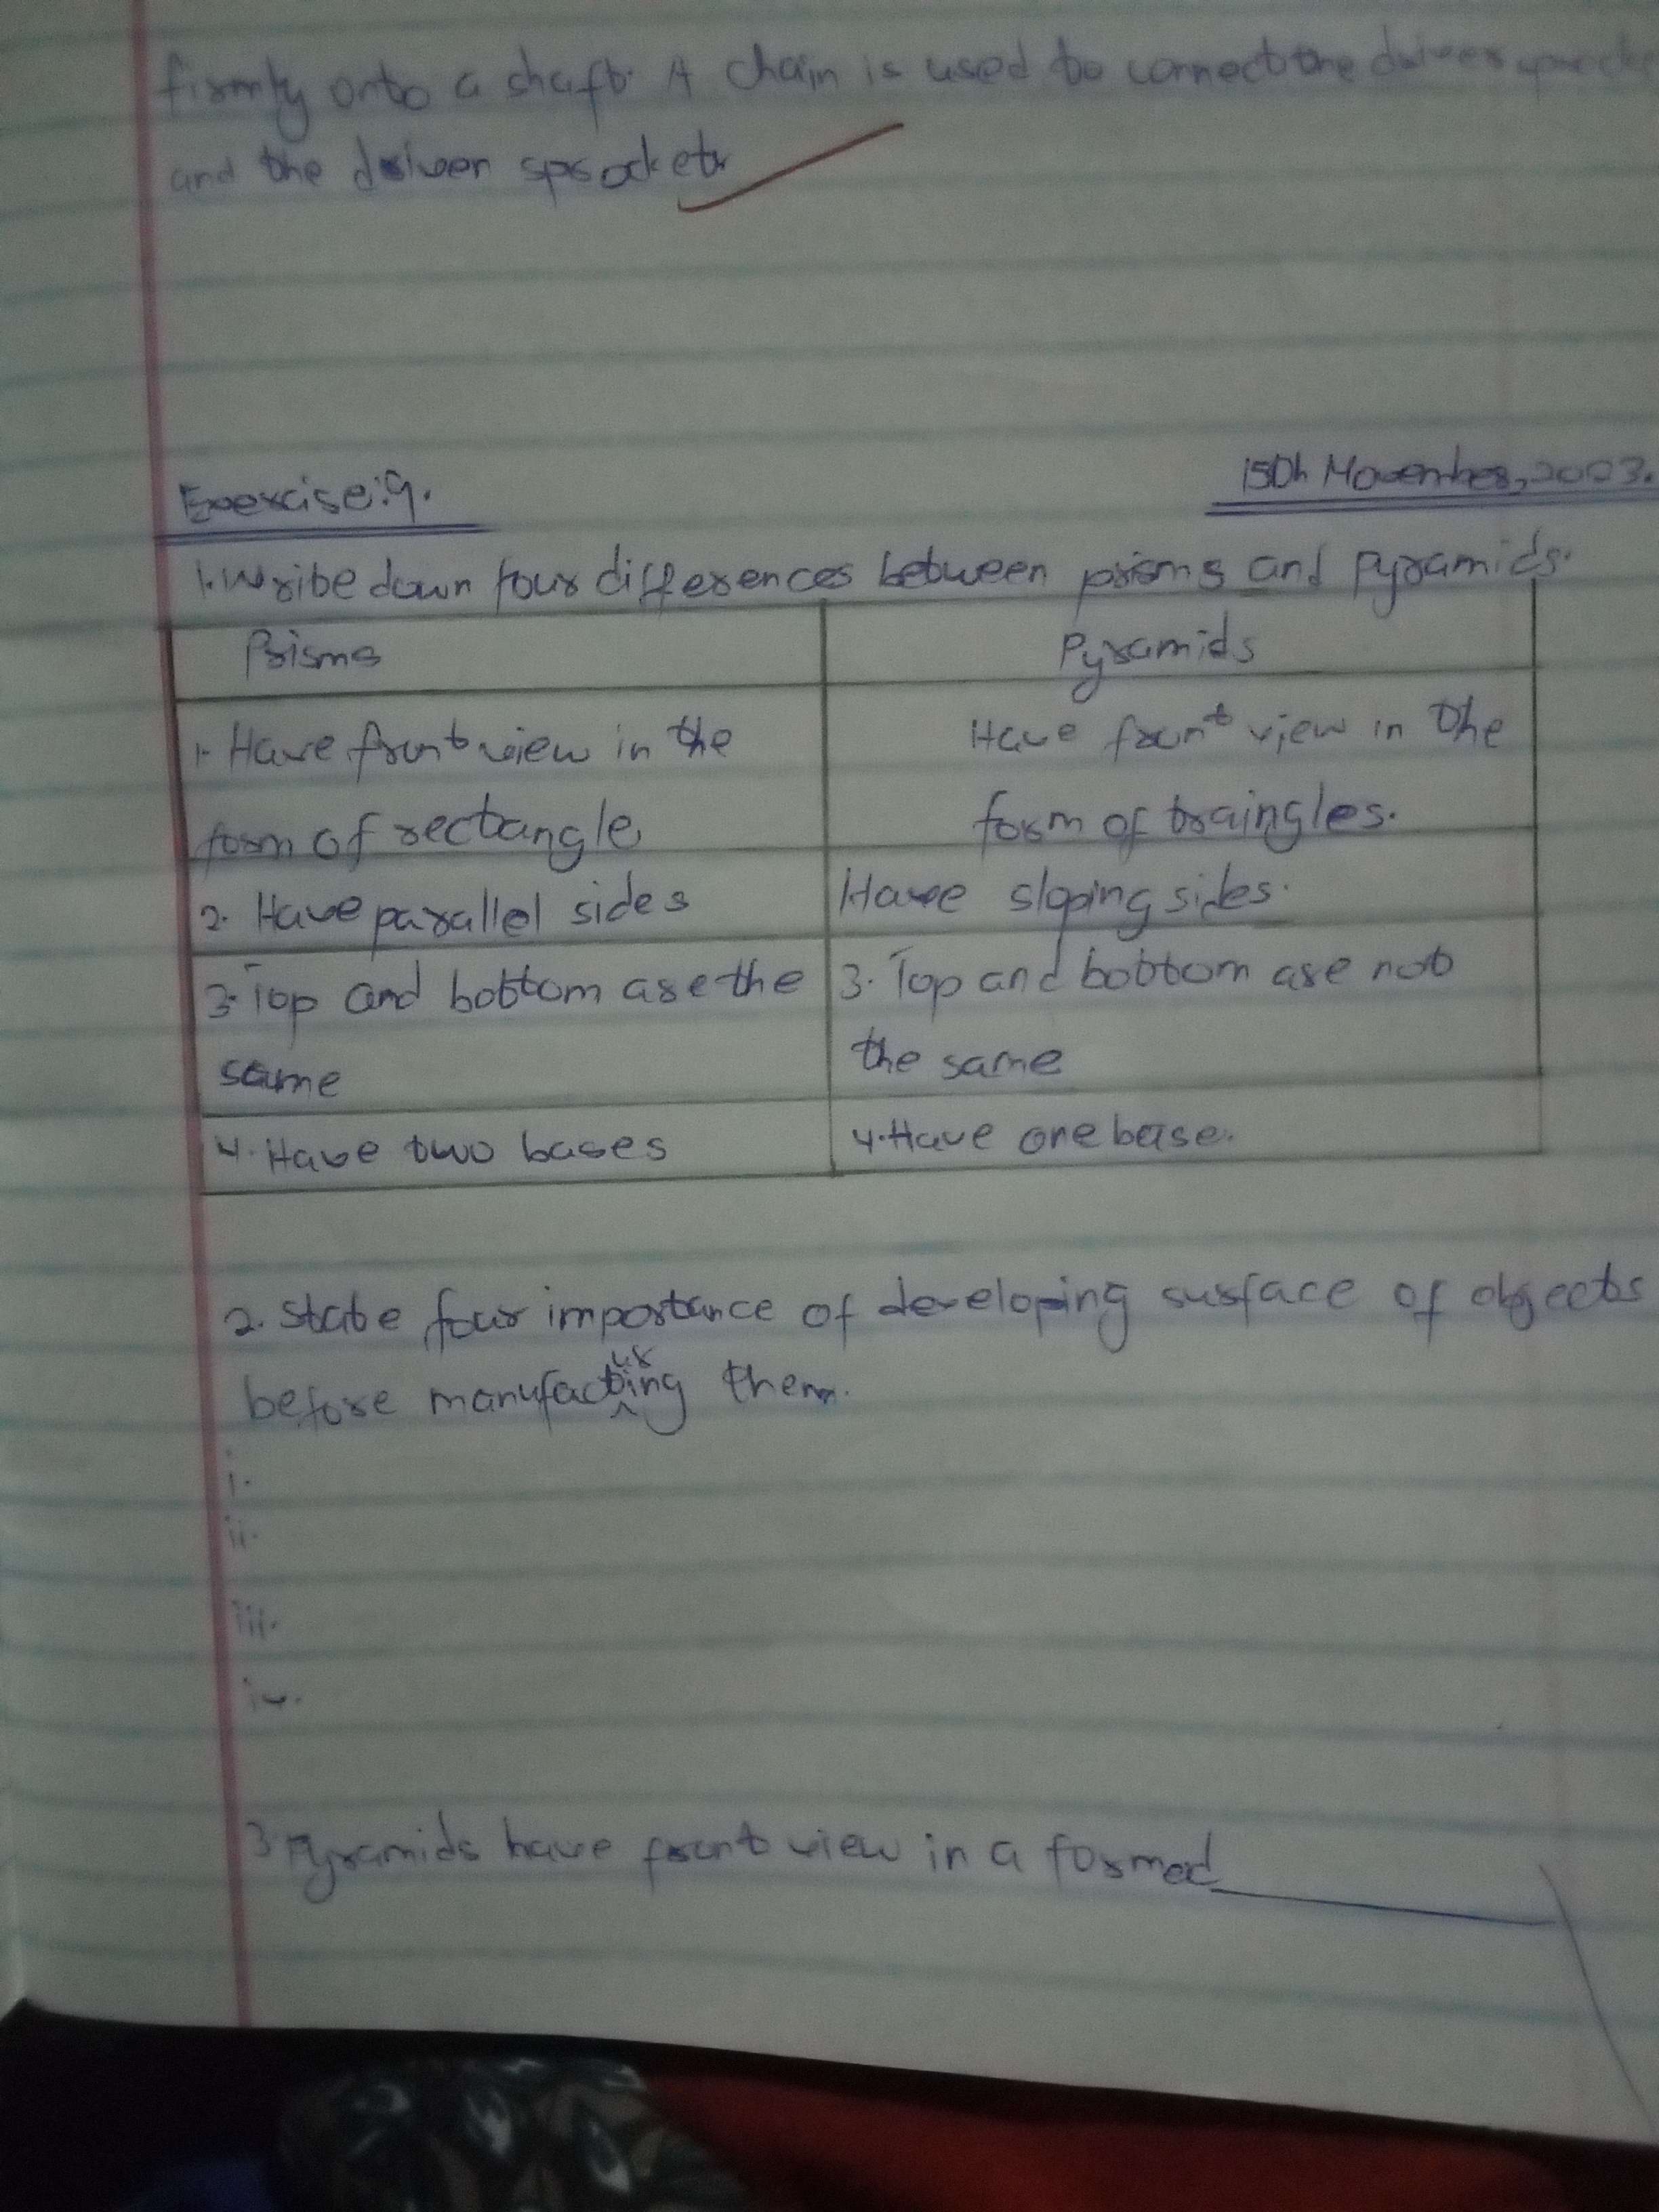 firmly onto a shaft. A chain is used to connect the driver
and the driven sprocket
Exercise: 9.
15th November, 2023.
1. Write down four differences between prisms and Pyramids.
Prisms
Pyramids
1. Have front view in the
form of rectangle
Have front view in the
form of traingles.
2. Have parallel sides
Have sloping sides.
3. Top and bottom are the
same
3. Top and bottom are not
the same
4. Have two bases
4. Have one base.
2. State four importance of developing surface of objects
before manufacturing them.
i.
ii.
iii.
iv.
3 Pyramids have front view in a formed